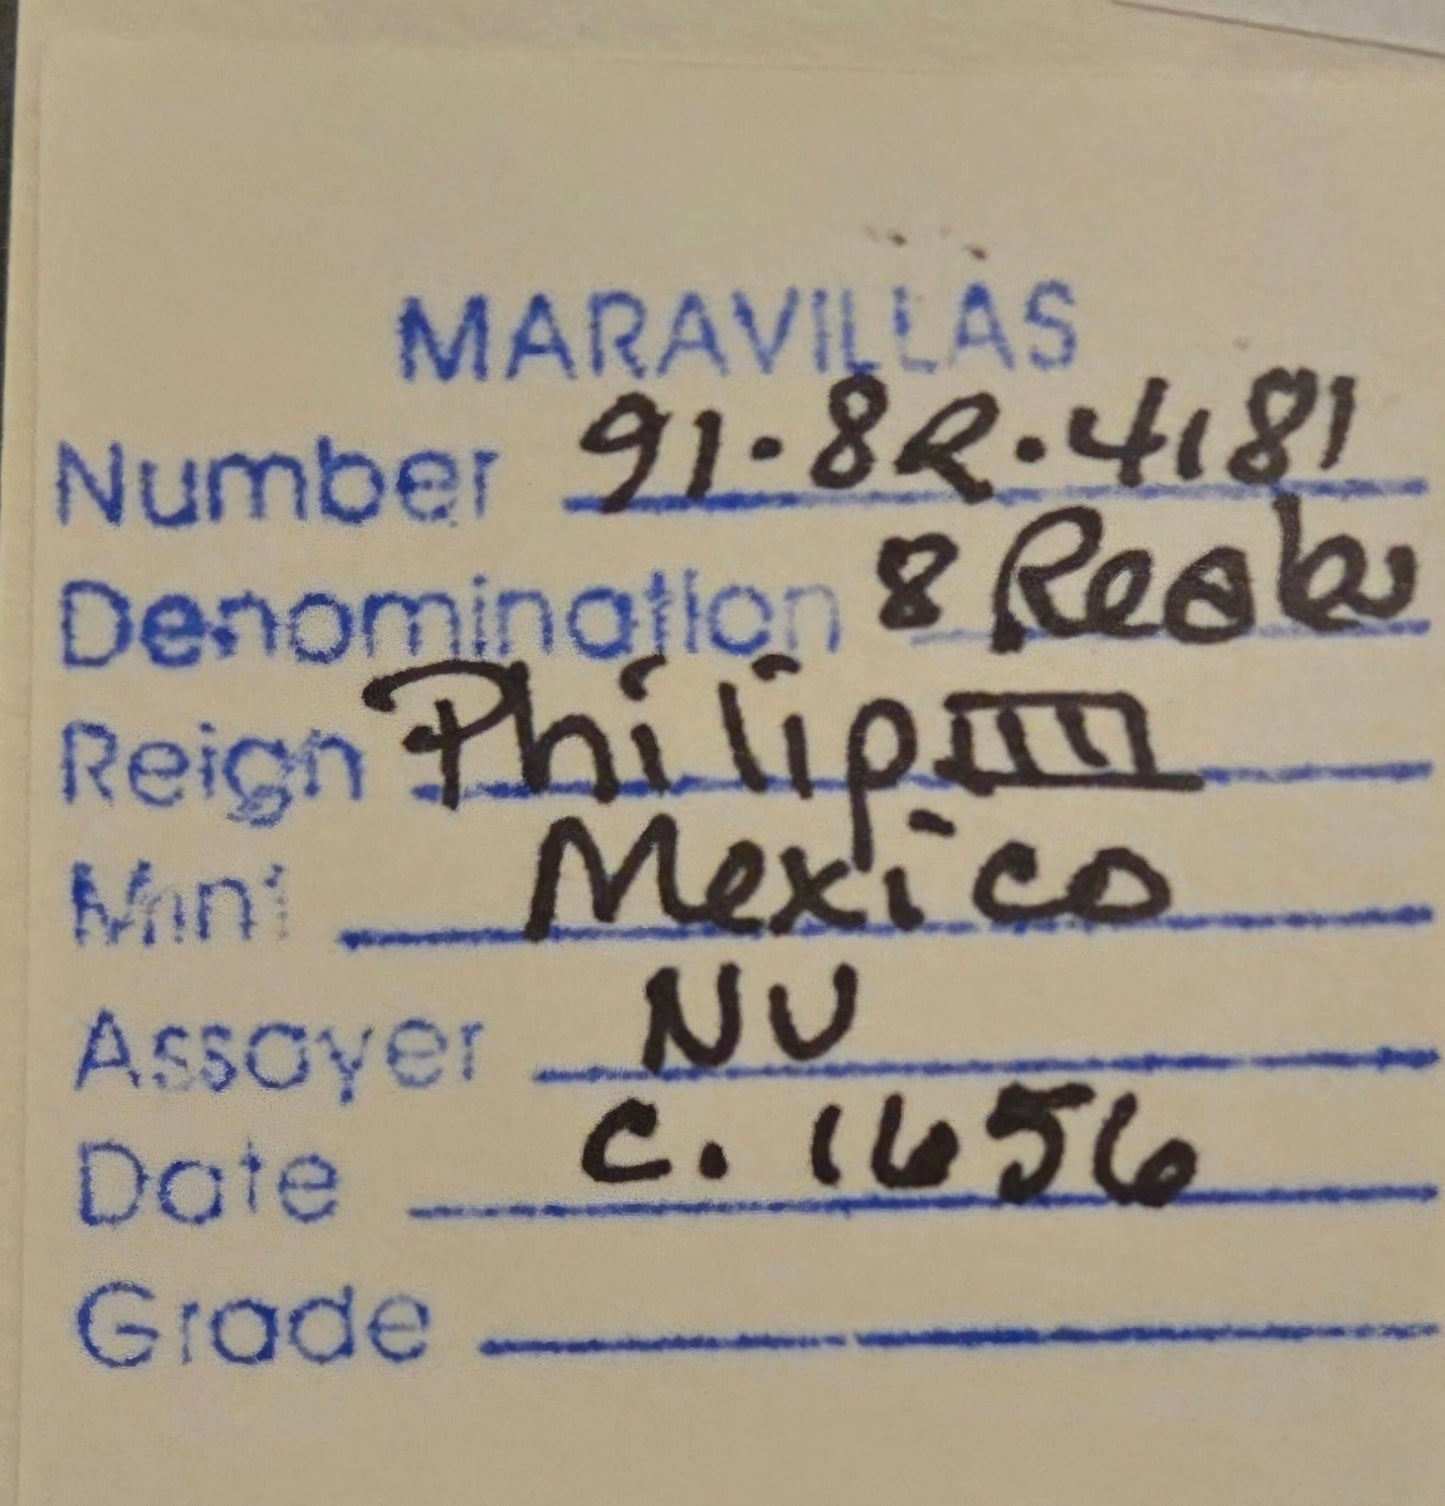 MARAVILLAS
Number 91·8R·4181
Denomination 8 Reales
Reign Philip IIII
Mint Mexico
Assayer NV
Date c. 1656
Grade